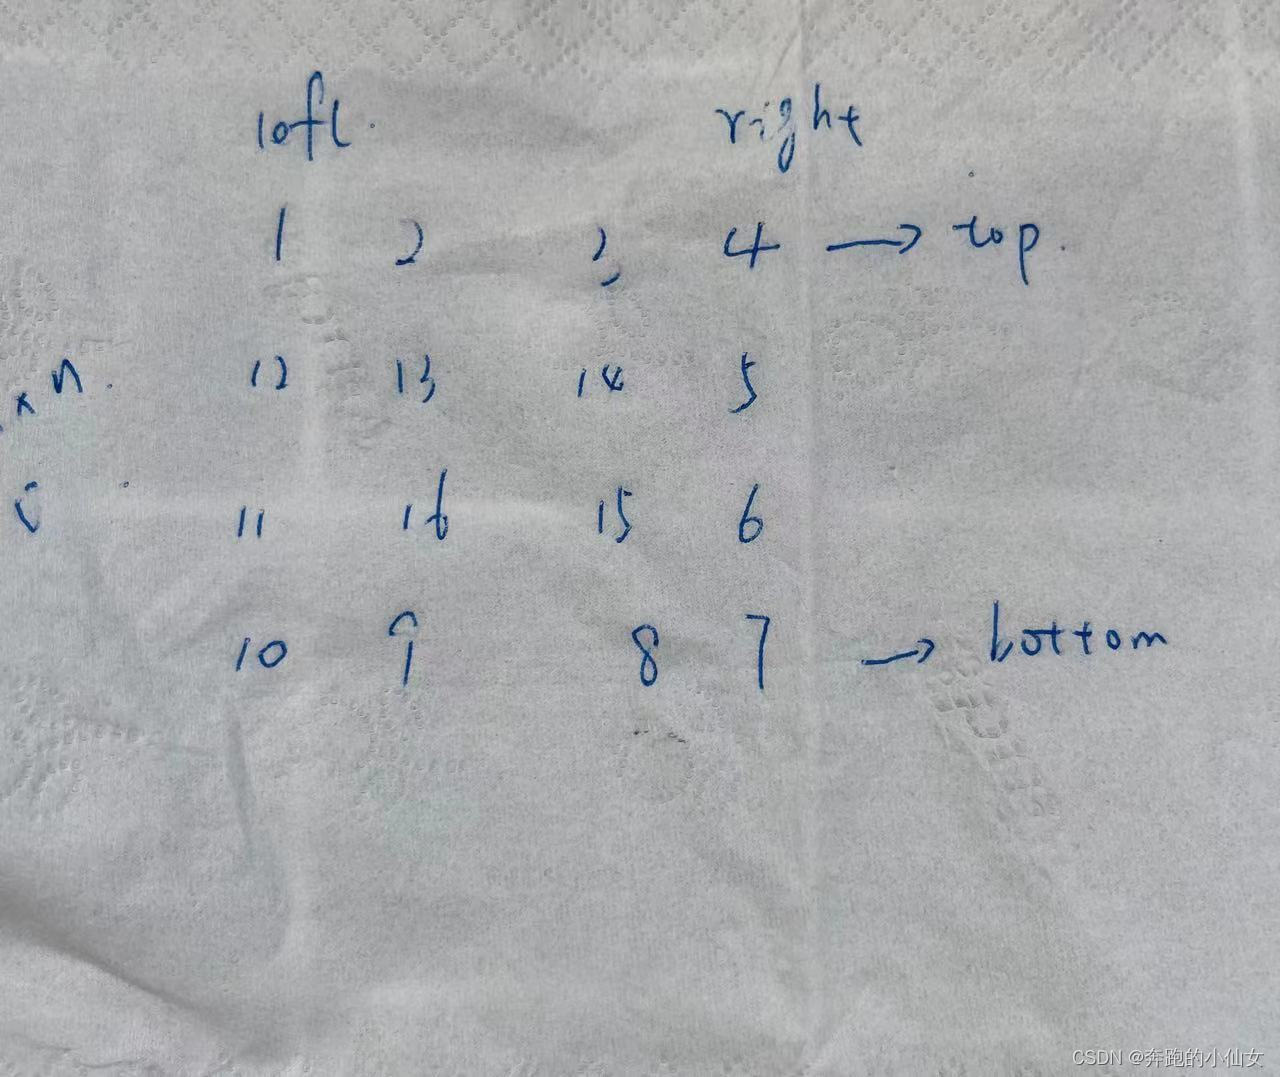 left. right
1 2 3 4 → top.
× n. 12 13 14 5
11 16 15 6
10 9 8 7 → bottom
CSDN @奔跑的小仙女